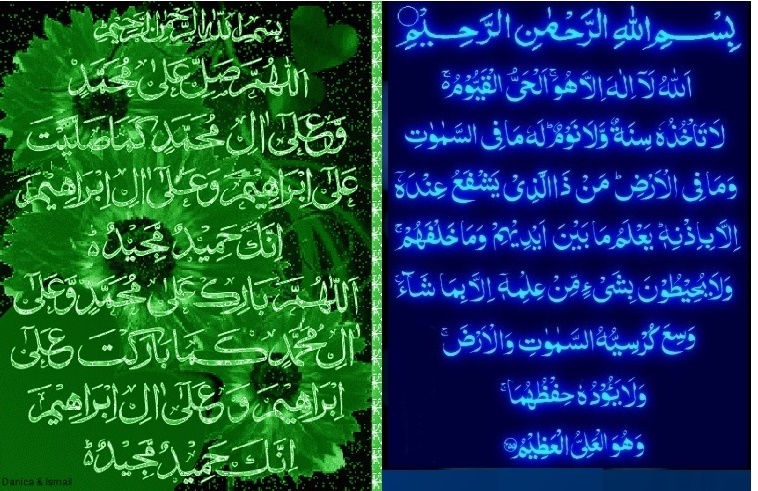 بِسْمِ اللهِ الرَّحْمٰنِ الرَّحِيْمِ
اَللّٰهُمَّ صَلِّ عَلٰى مُحَمَّدٍ
وَّعَلٰٓى اٰلِ مُحَمَّدٍ كَمَا صَلَّيْتَ
عَلٰٓى اِبْرَاهِيْمَ وَعَلٰٓى اٰلِ اِبْرَاهِيْمَ
اِنَّكَ حَمِيْدٌ مَّجِيْدٌ ؕ
اَللّٰهُمَّ بَارِكْ عَلٰى مُحَمَّدٍ وَّعَلٰٓى
اٰلِ مُحَمَّدٍ كَمَا بَارَكْتَ عَلٰٓى
اِبْرَاهِيْمَ وَعَلٰٓى اٰلِ اِبْرَاهِيْمَ
اِنَّكَ حَمِيْدٌ مَّجِيْدٌ ؕ
Danica & Ismail
بِسْمِ اللهِ الرَّحْمٰنِ الرَّحِيْمِ
اَللهُ لَآ اِلٰهَ اِلَّا هُوَ ۚ اَلْحَىُّ الْقَيُّوْمُ ۚ
لَا تَاْخُذُهٗ سِنَةٌ وَّلَا نَوْمٌ ؕ لَهٗ مَا فِى السَّمٰوٰتِ
وَمَا فِى الْاَرْضِ ؕ مَنْ ذَا الَّذِىْ يَشْفَعُ عِنْدَهٗٓ
اِلَّا بِاِذْنِهٖ ؕ يَعْلَمُ مَا بَيْنَ اَيْدِيْهِمْ وَمَا خَلْفَهُمْ ۚ
وَلَا يُحِيْطُوْنَ بِشَىْءٍ مِّنْ عِلْمِهٖٓ اِلَّا بِمَا شَآءَ ۚ
وَسِعَ كُرْسِيُّهُ السَّمٰوٰتِ وَالْاَرْضَ ۚ
وَلَا يَـُٔوْدُهٗ حِفْظُهُمَا ۚ
وَهُوَ الْعَلِىُّ الْعَظِيْمُ ﴿۲۵۵﴾